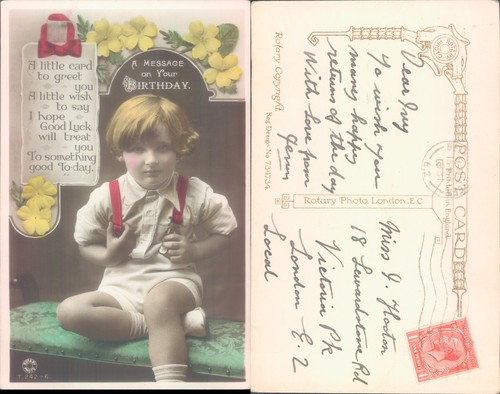 A little card
to greet
you
A little wish
to say
I hope
Good Luck
will treat
you
To something
good To-day.
A MESSAGE
on Your
BIRTHDAY.
7.242-6
Dear Ivy
To wish you
many happy
returns of the day
With love from
Jenny
Rotary Copyright.
Reg. Design No 734734.
POST CARD
Rotary Photo, London. E.C
Miss I. Hooton
18 Lewardstone Rd
Victoria Pk
London E. 2
Local